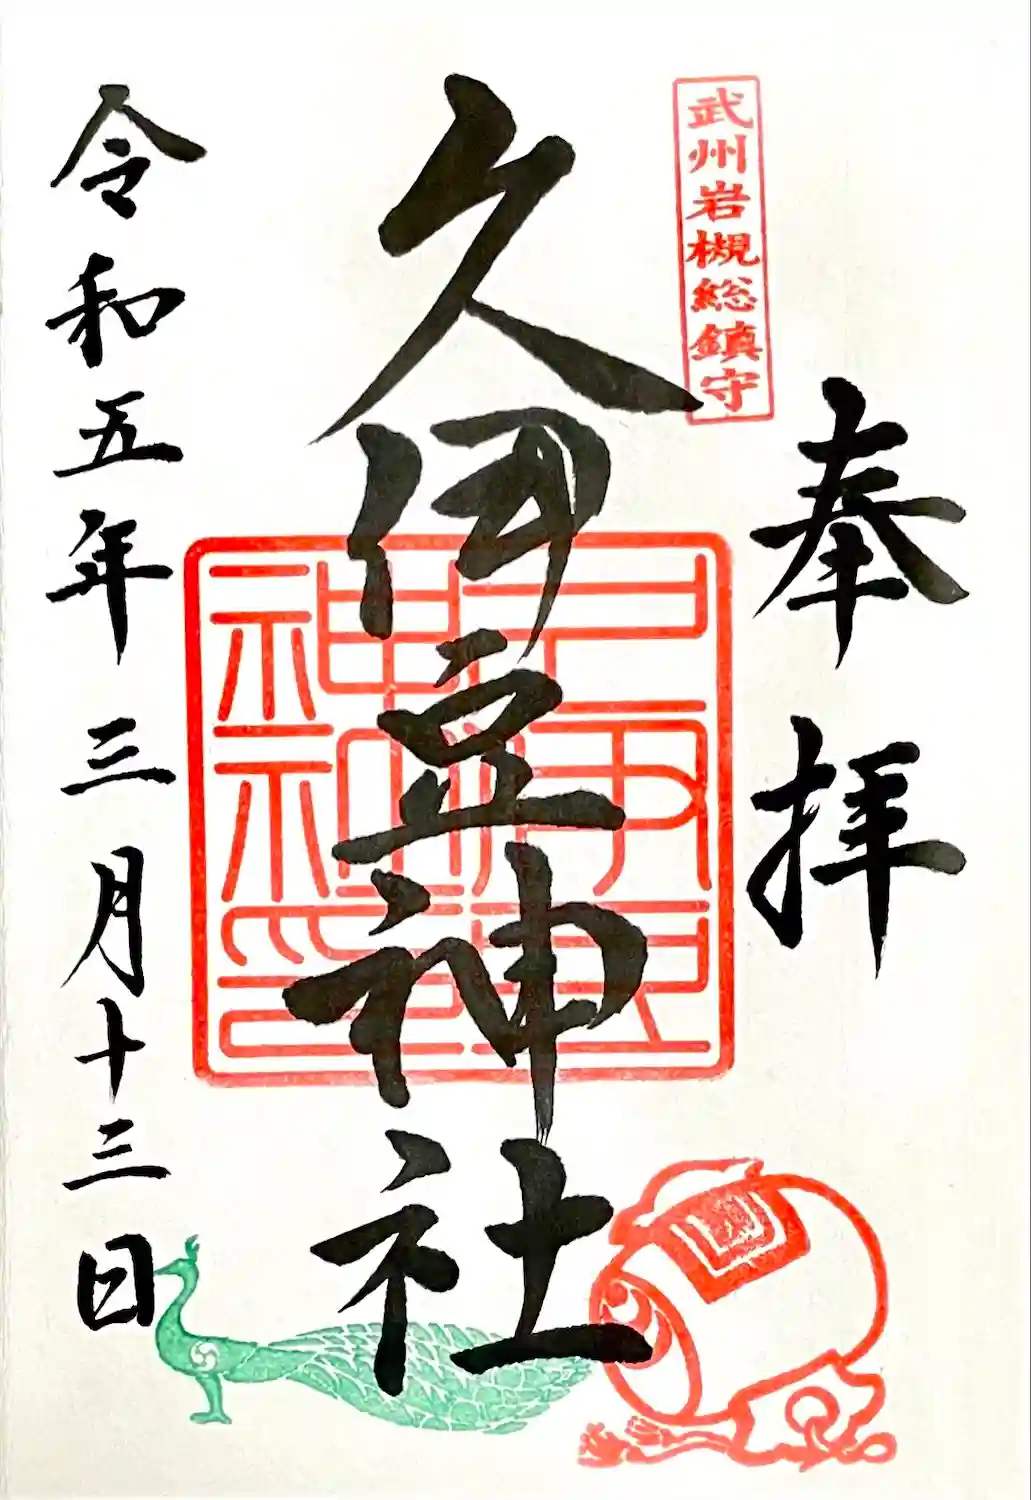 武州岩槻総鎮守
奉拝
久伊豆神社
久伊豆
神社印
令和五年三月十三日